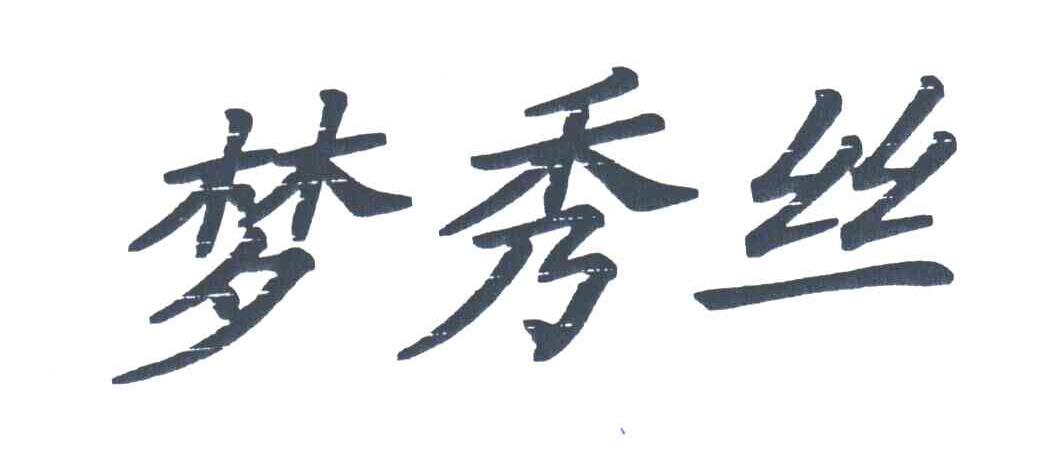 梦秀丝